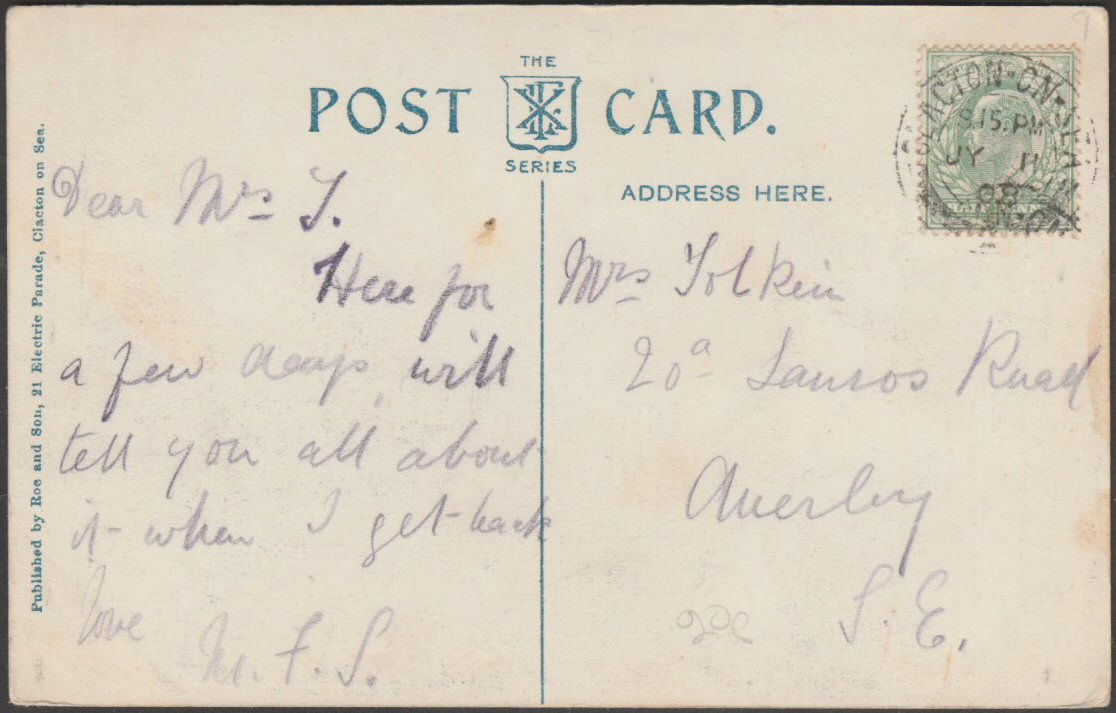 THE
POST CARD.
SERIES
ADDRESS HERE.
CLACTON-ON-SEA
8.15.PM
JY 11
08
Published by Roe and Son, 21 Electric Parade, Clacton on Sea.
Dear Mrs T.
Here for
a few days, will
tell you all about
it when I get back
love
M. F. S.
Mrs Tolkin
20a Road
Anerley
S. E.